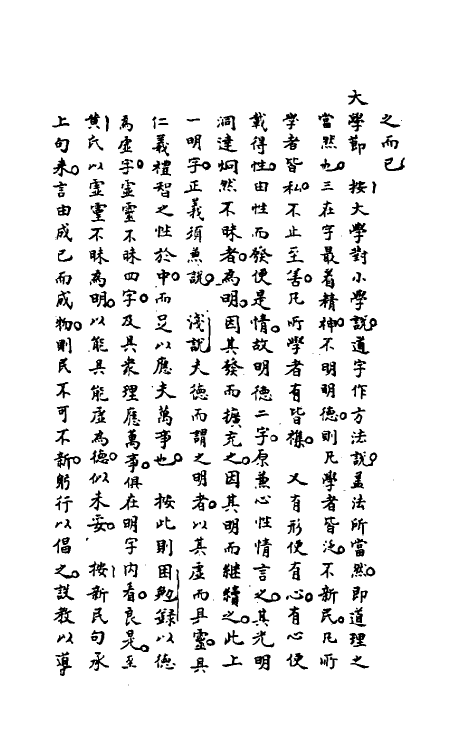 之而已
大學節　按大學對小學說道字作方法說蓋法所當然即道理之
當然也三在字最着精神不明明德則凡學者皆泛不新民凡所
學者皆私不止至善凡所學者有皆襍　又有形便有心有心便
載得性由性而發便是情故明德二字原兼心性情言之其光明
洞達烱然不昧者為明因其發而擴充之因其明而継續之此上
一明字正義須兼說　淺說夫德而謂之明者以其虛而且靈具
仁義禮智之性於中而足以應夫萬事也　按此則困勉録以德
為虛字虛靈不昧四字及具衆理應萬事俱在明字内看良是至
黄氏以虛靈不昧為明以能具能虛為德似未妥　按新民句承
上句来言由成已而成物則民不可不新躬行以倡之設教以導